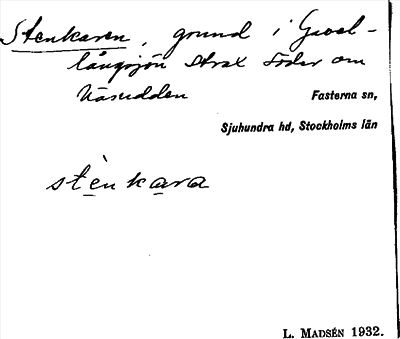 Stenkaren, grund i Gavel-
långsjön strax söder om
Näsudden
Fasterna sn,
Sjuhundra hd, Stockholms län
stènkara
L. MADSÉN 1932.